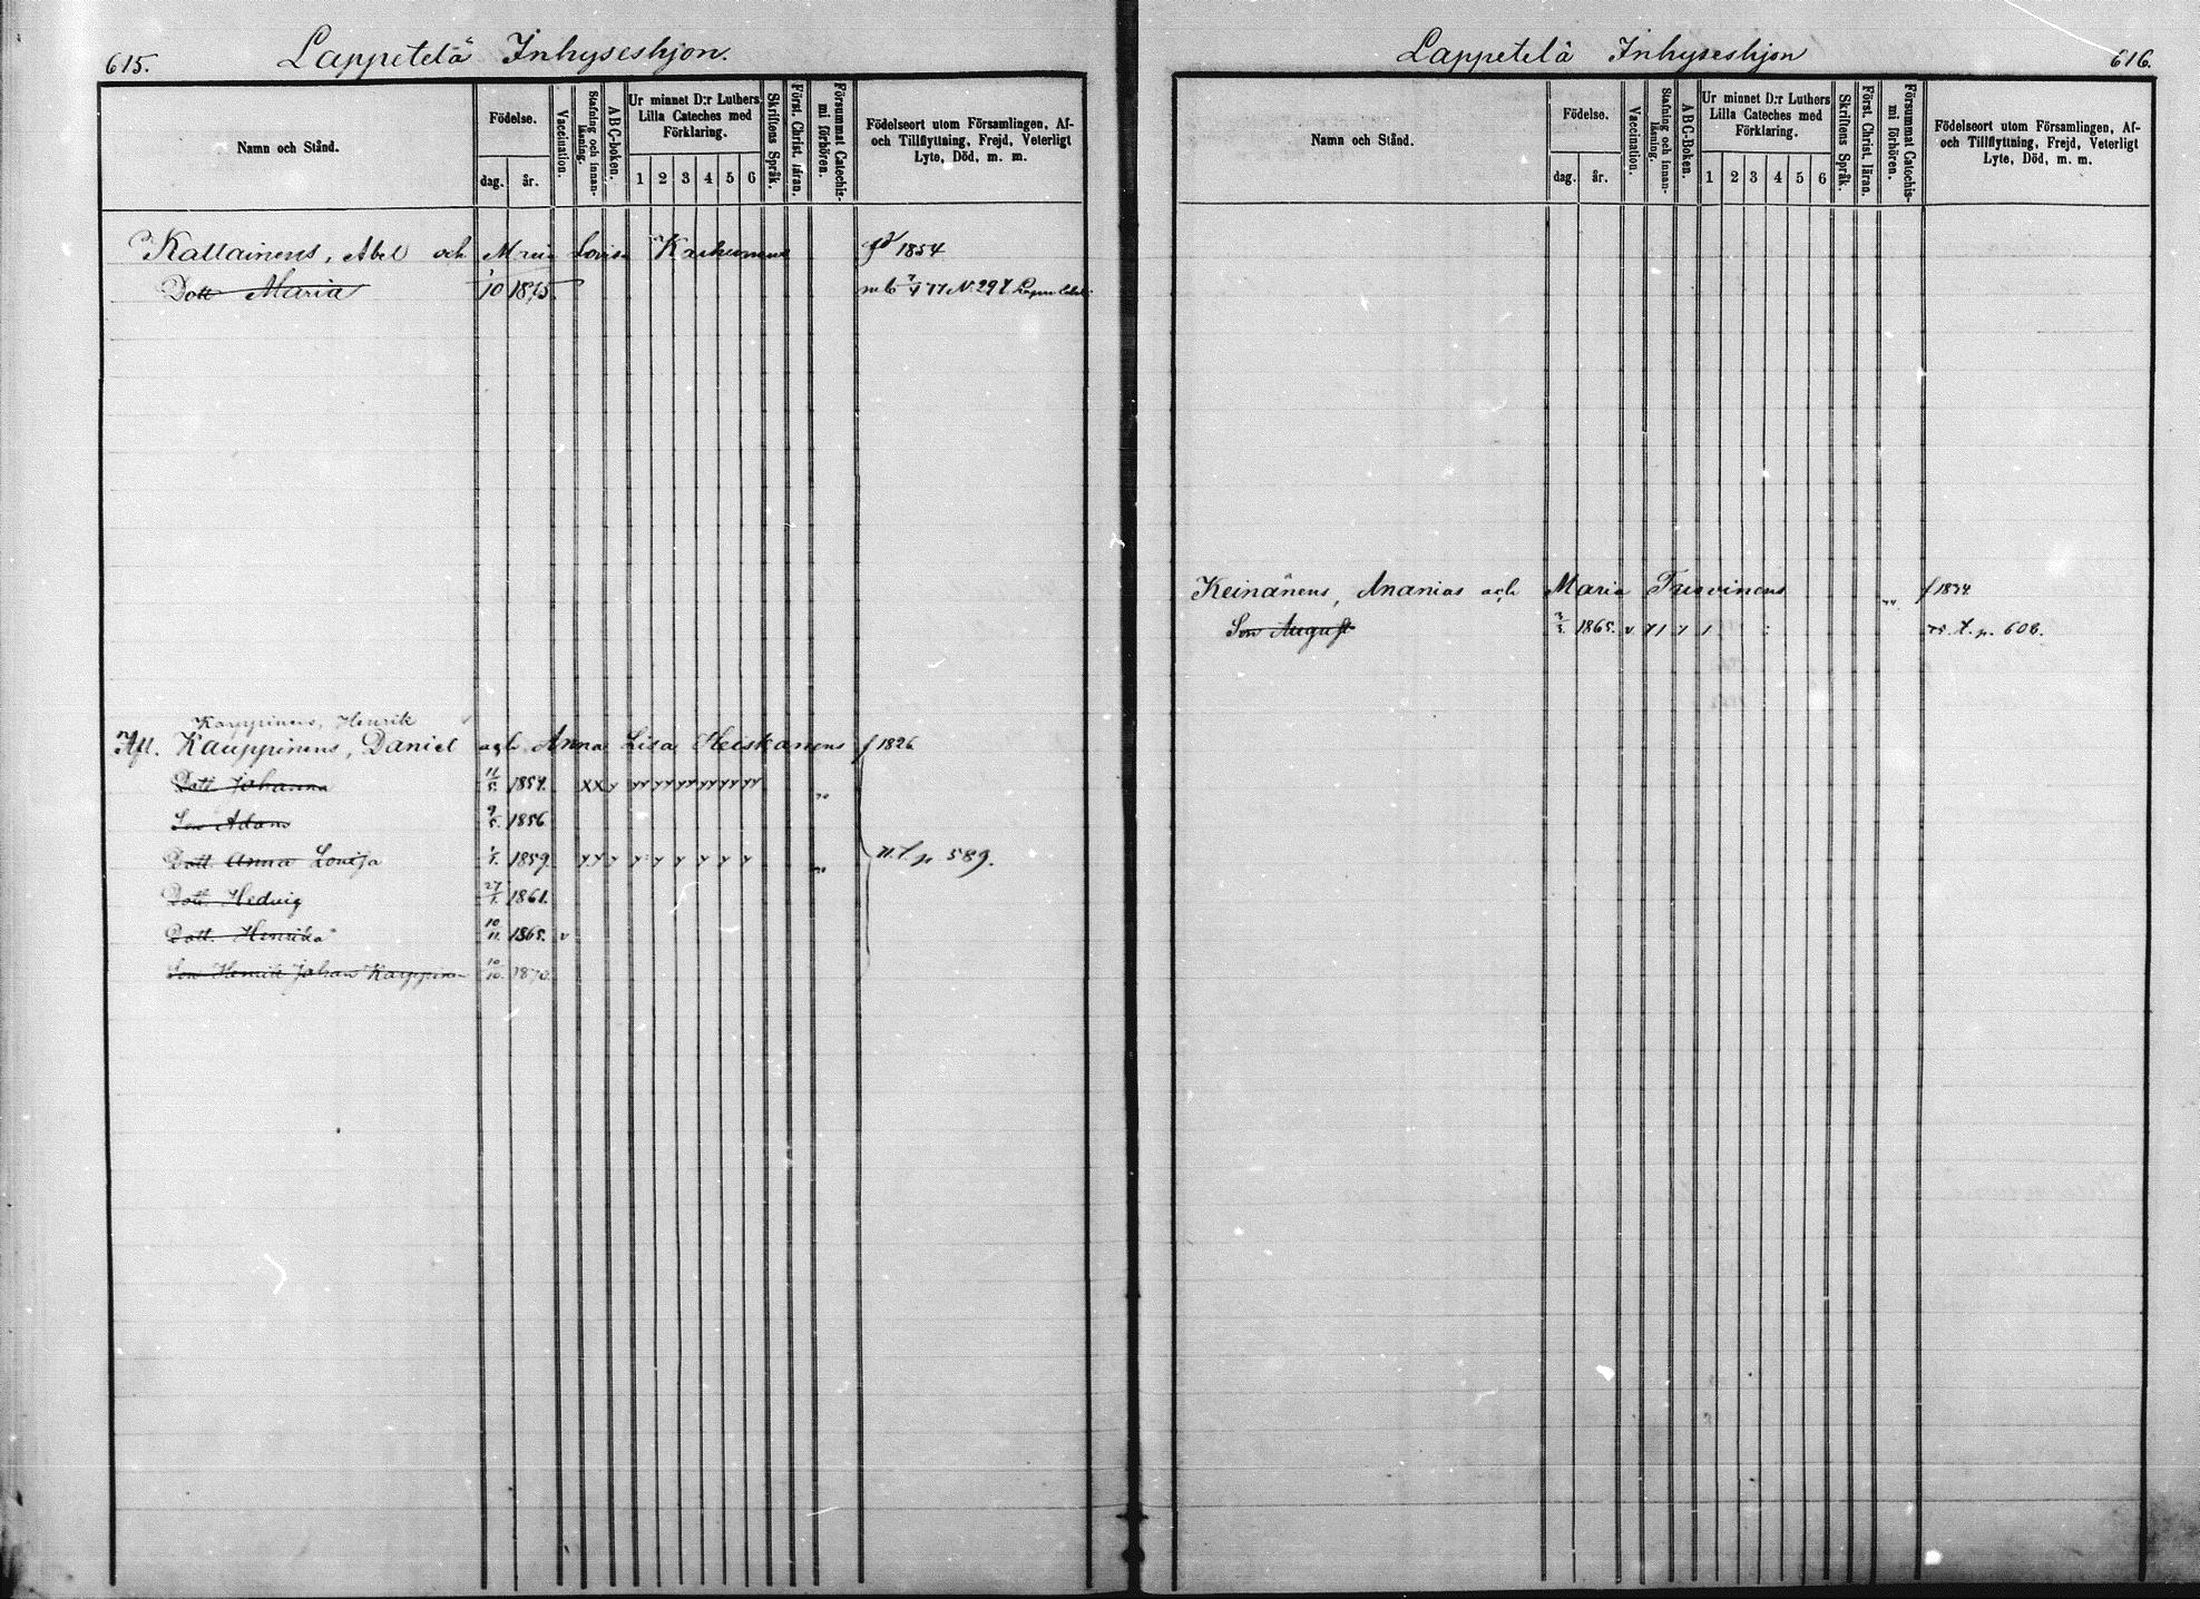 615.
Lappetelä Inhyseshjon.
Namn och Stånd.
Födelse.
dag.
år.
Vaccination.
Stafning och innan-
läsning.
ABC-boken.
Ur minnet D:r Luthers
Lilla Cateches med
Förklaring.
1 2 3 4 5 6
Skriftens Språk.
Först. Christ. läran.
Försummat Catechis-
mi förhören.
Födelseort utom Församlingen, Af-
och Tillflyttning, Frejd, Veterligt
Lyte, Död, m. m.
Kallainens, Abel och Maria Lovisa 1854
Dott Maria 1/10 1875 N:297
Kauppinens, Henrik
Afl. Kauppinens, Daniel och Anna Lisa Heiskanens f 1826
Dott Johanna 11/5. 1854.
Son Adam 9/5. 1856
Dott Anna Lovisa 1/1. 1859. p 589.
Dott. Hedvig 27/1. 1861.
Dott. Henrika 10/11. 1865. v
Son Henrik Johan Kauppinen 10/10. 1870.
Lappetelä Inhyseshjon
616.
Namn och Stånd.
Födelse.
dag.
år.
Vaccination.
Stafning och innan-
läsning.
ABC-Boken.
Ur minnet D:r Luthers
Lilla Cateches med
Förklaring.
1 2 3 4 5 6
Skriftens Språk.
Först. Christ. läran.
Försummat Catechis-
mi förhören.
Födelseort utom Församlingen, Af-
och Tillflyttning, Frejd, Veterligt
Lyte, Död, m. m.
Keinänens, Ananias och Maria
Son August 1865. v p. 608.